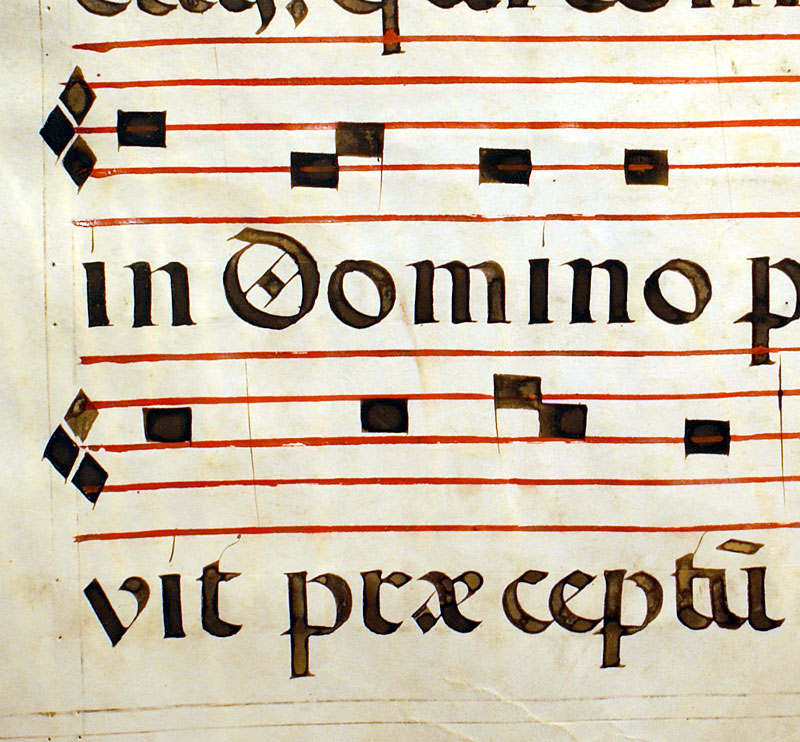 in Domino p
vit præceptū